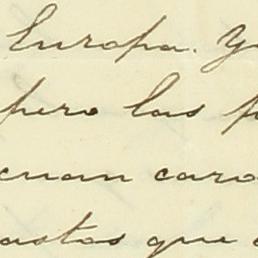 Europa. Y
pero las p
cuan caro
astos que